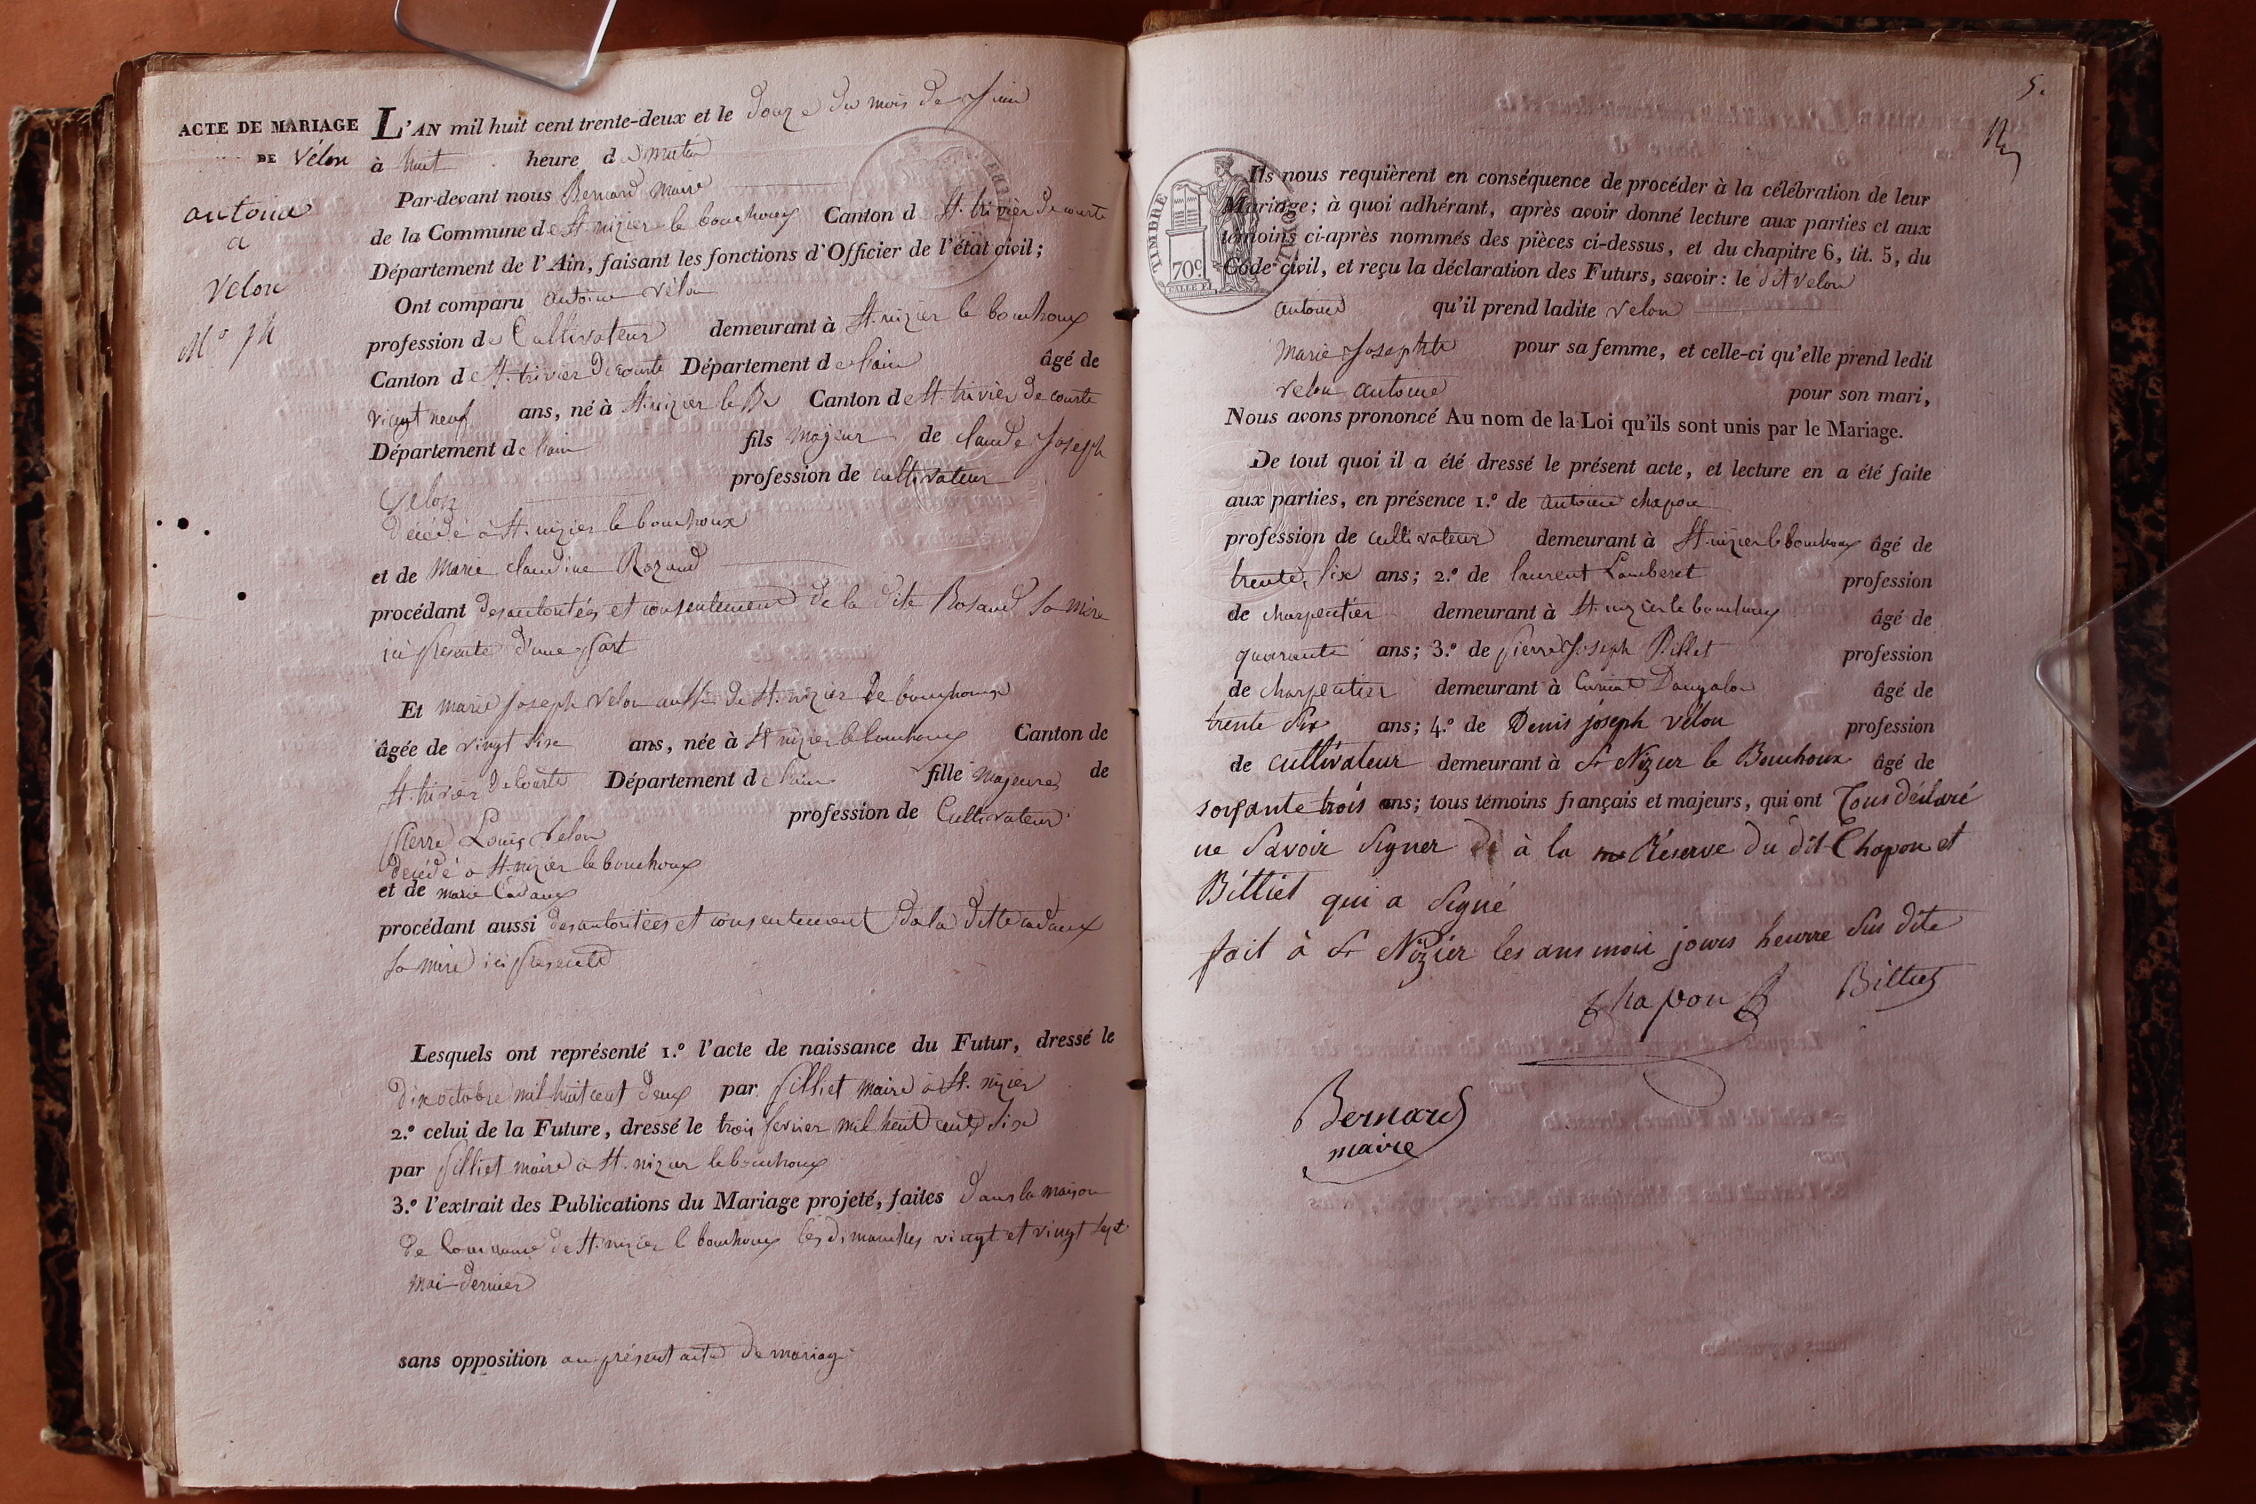 ACTE DE MARIAGE
DE Vélon
antoine
a
Velon
L'AN mil huit cent trente-deux et le douze du mois de Juin
à huit heure du matin
Par-devant nous Bernard Maire
de la Commune de St nizier le bouchoux Canton d St. trivier de courte
Département de l'Ain, faisant les fonctions d'Officier de l'état civil;
Ont comparu antoine vélon
profession de Cultivateur demeurant à St. nizier le bouchoux
Canton de St. trivier de courte Département de l'ain âgé de
vingt neuf ans, né à St. nizier le B. Canton de St. trivier de courte
Département de l'ain fils majeur de claude Joseph
profession de cultivateur
Velon
décédé à St. nizier le bouchoux
et de Marie claudine Rozand
procédant des autorités et consentement de la dite Rosand sa mère
ici présente d'une part
Et marie joseph velon aussi de St. nizier le bouchoux
âgée de vingt six ans, née à St nizier le bouchoux Canton de
St. trivier de courte Département de l'ain fille majeure de
profession de Cultivateur
Pierre Louis velon
décédé à St. nizier le bouchoux
et de marie Cadaux
procédant aussi des autoritées et consentement de la ditte cadaux
sa mère ici présente
Lesquels ont représenté 1.º l'acte de naissance du Futur, dressé le
dix octobre mil huit cent deux par pilliet maire à St. nizier
2.º celui de la Future, dressé le trois fevrier mil huit cent six
par pilliet maire à St. nizier le bouchoux
3.º l'extrait des Publications du Mariage projeté, faites dans la maison
de Commune de St. nizier le bouchoux les dimanches vingt et vingt sept
mai dernier
sans opposition au présent acte de mariage
5.
TIMBRE ROYAL
70c
Ils nous requièrent en conséquence de procéder à la célébration de leur
Mariage; à quoi adhérant, après avoir donné lecture aux parties et aux
témoins ci-après nommés des pièces ci-dessus, et du chapitre 6, tit. 5, du
Code civil, et reçu la déclaration des Futurs, savoir: le dit velon
antoine qu'il prend ladite velon
Marie Josephte pour sa femme, et celle-ci qu'elle prend ledit
velon antoine pour son mari,
Nous avons prononcé Au nom de la Loi qu'ils sont unis par le Mariage.
De tout quoi il a été dressé le présent acte, et lecture en a été faite
aux parties, en présence 1.º de antoine chapon
profession de cultivateur demeurant à St. nizier le bouchoux âgé de
trente six ans; 2.º de laurent Lamberet profession
de charpentier demeurant à St. nizier le bouchoux âgé de
quarante ans; 3.º de pierre Joseph Billet profession
de charpentier demeurant à Curciat Dongalon âgé de
trente six ans; 4.º de Denis joseph vélon profession
de cultivateur demeurant à St Nizier le Bouchoux âgé de
soixante trois ans; tous témoins français et majeurs, qui ont Tous déclaré
ne Savoir Signer à la Réserve du dit Chapon et
Billiet qui a Signé
fait à St Nizier les ans mois jours heurre sus dite
Chapon Billiet
Bernard
maire